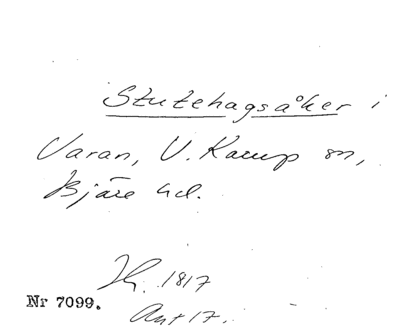 Stutehagsåker i
Varan, V. Karup sn,
Bjäre hd.
Hy. 1817
Nr 7099.
Ant 17.